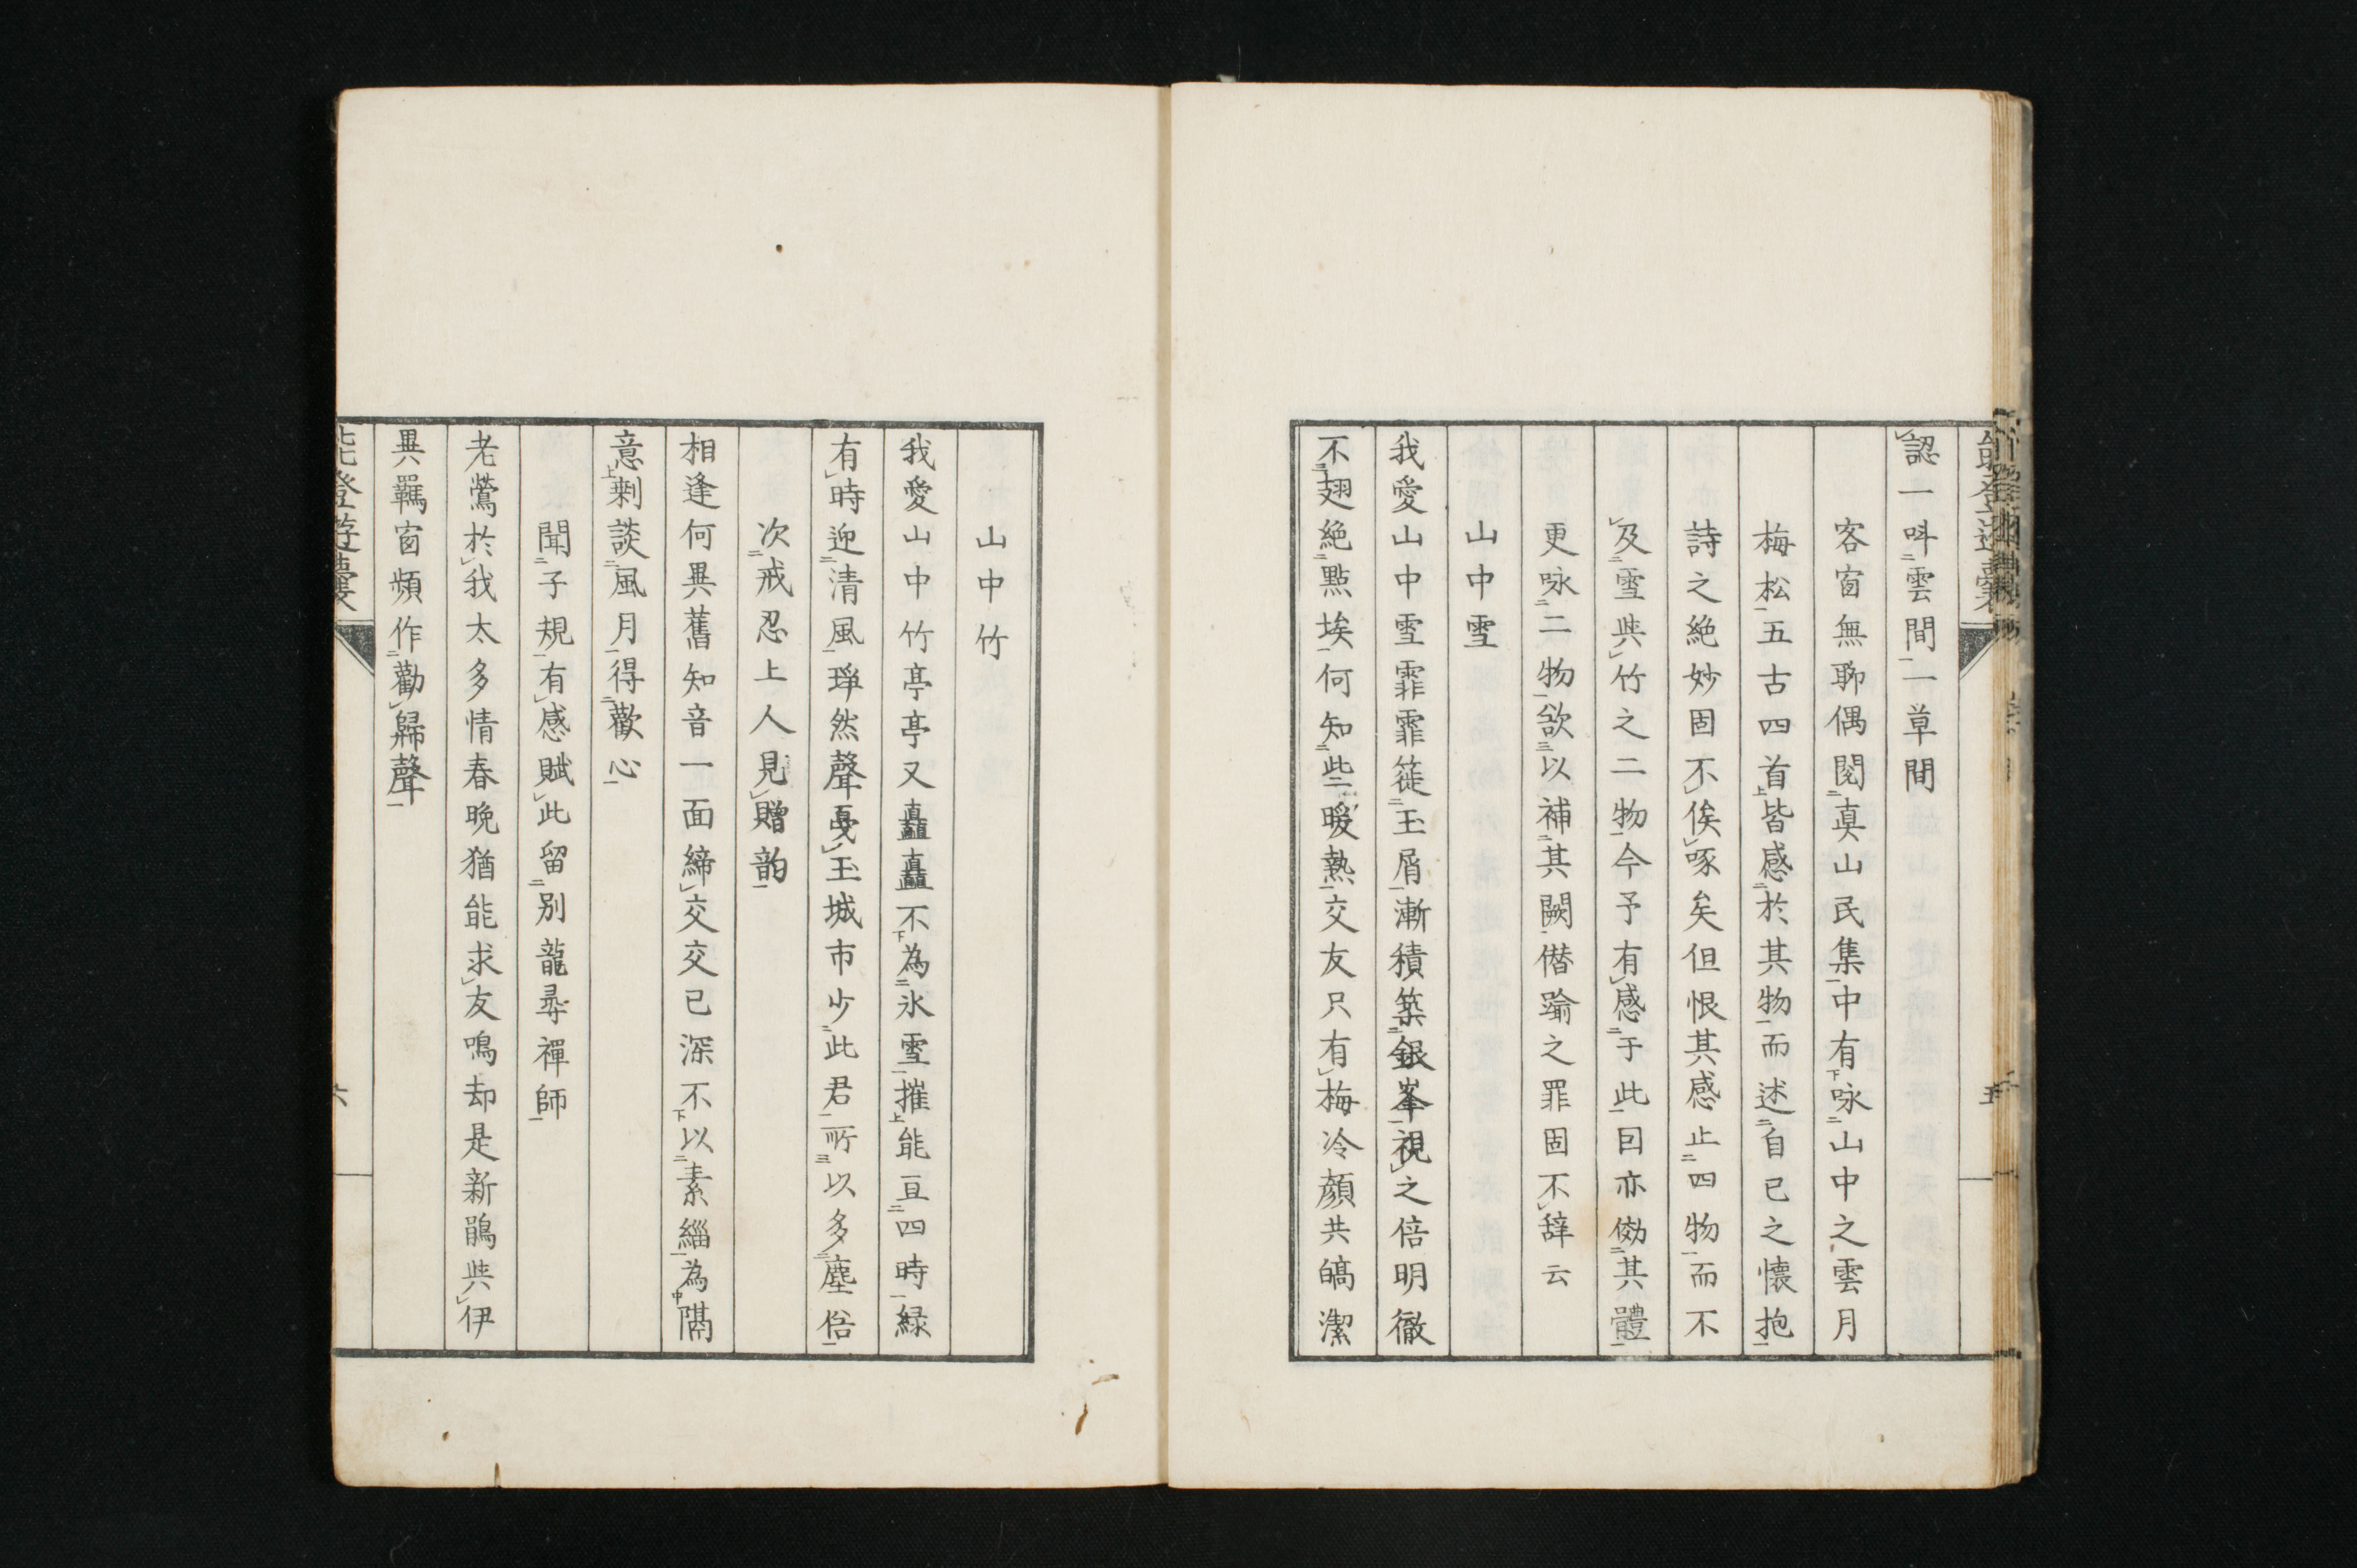 認一呌雲間一草間
客窗無聊偶閲真山民集中有咏山中之雲月
梅松五古四首皆感於其物而述自己之懐抱
詩之絶妙固不俟啄矣但恨其感止四物而不
及雪與竹之二物今予有感于此因亦傚其體
更咏二物欲以補其闕僭踰之罪固不辞云
山中雪
我愛山中雪霏霏簁玉屑漸積築銀峯視之倍明徹
不翅絶點埃何知些暖熱交友只有梅冷顔共皜潔
山中竹
我愛山中竹亭亭又矗矗不為氷雪摧能亘四時緑
有時迎清風琤然聲戞玉城市少此君所以多塵俗
次戒忍上人見贈韵
相逢何異舊知音一面締交交已深不以素緇為隔
意剰談風月得歡心
聞子規有感賦此留別龍尋禪師
老鶯於我太多情春晩猶能求友鳴却是新鵑與伊
異羈窗頻作勸歸聲
六